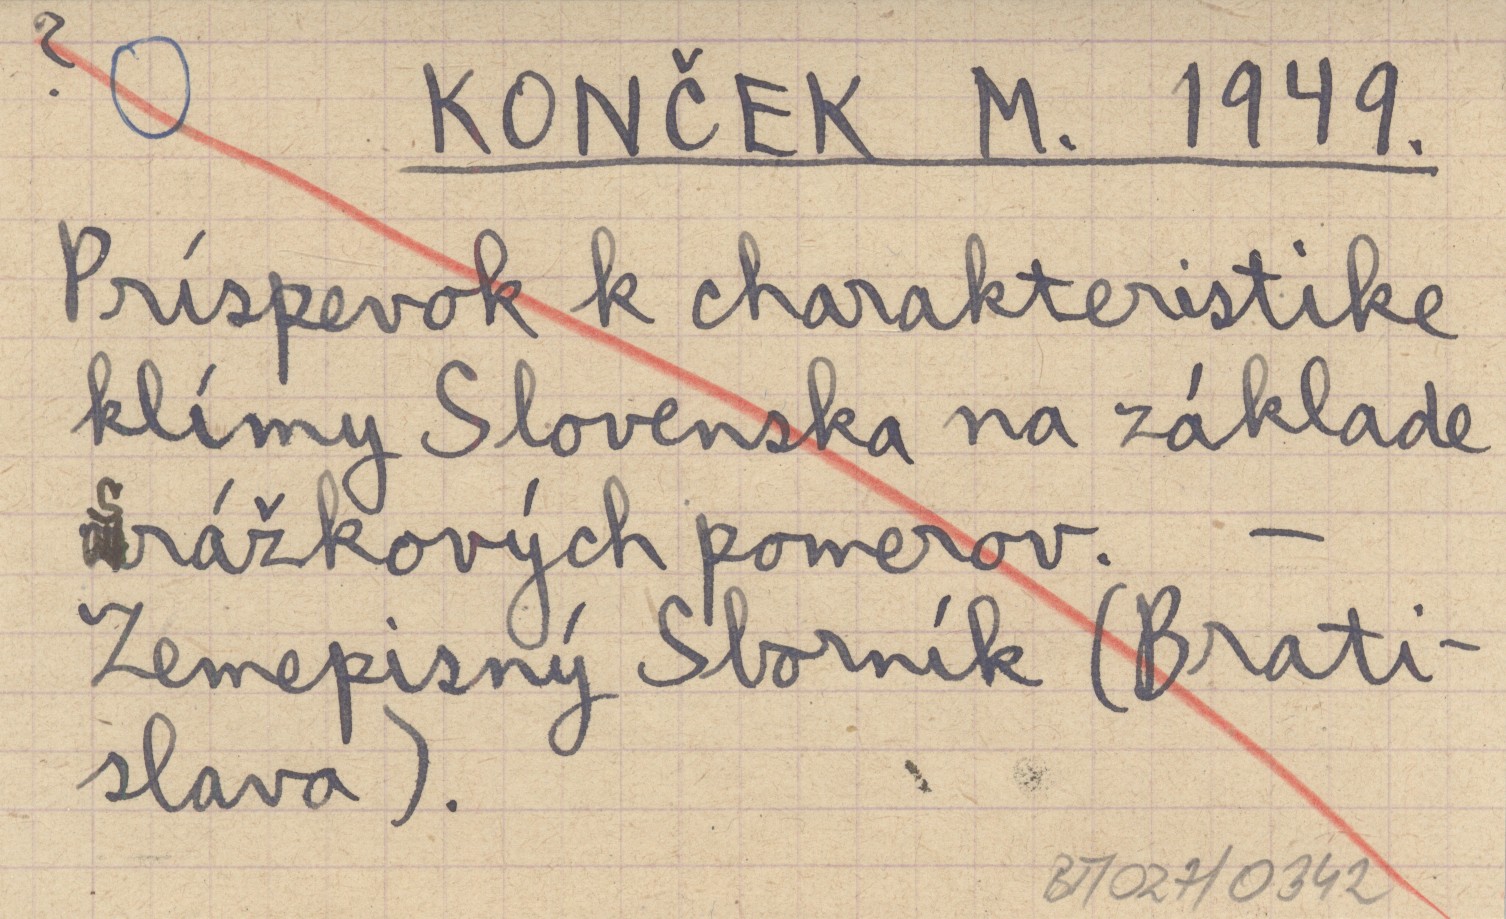 ?
KONČEK M. 1949.
Príspevok k charakteristike
klímy Slovenska na základe
srážkových pomerov. –
Zemepisný Sborník (Brati-
slava).
BT/027/0342